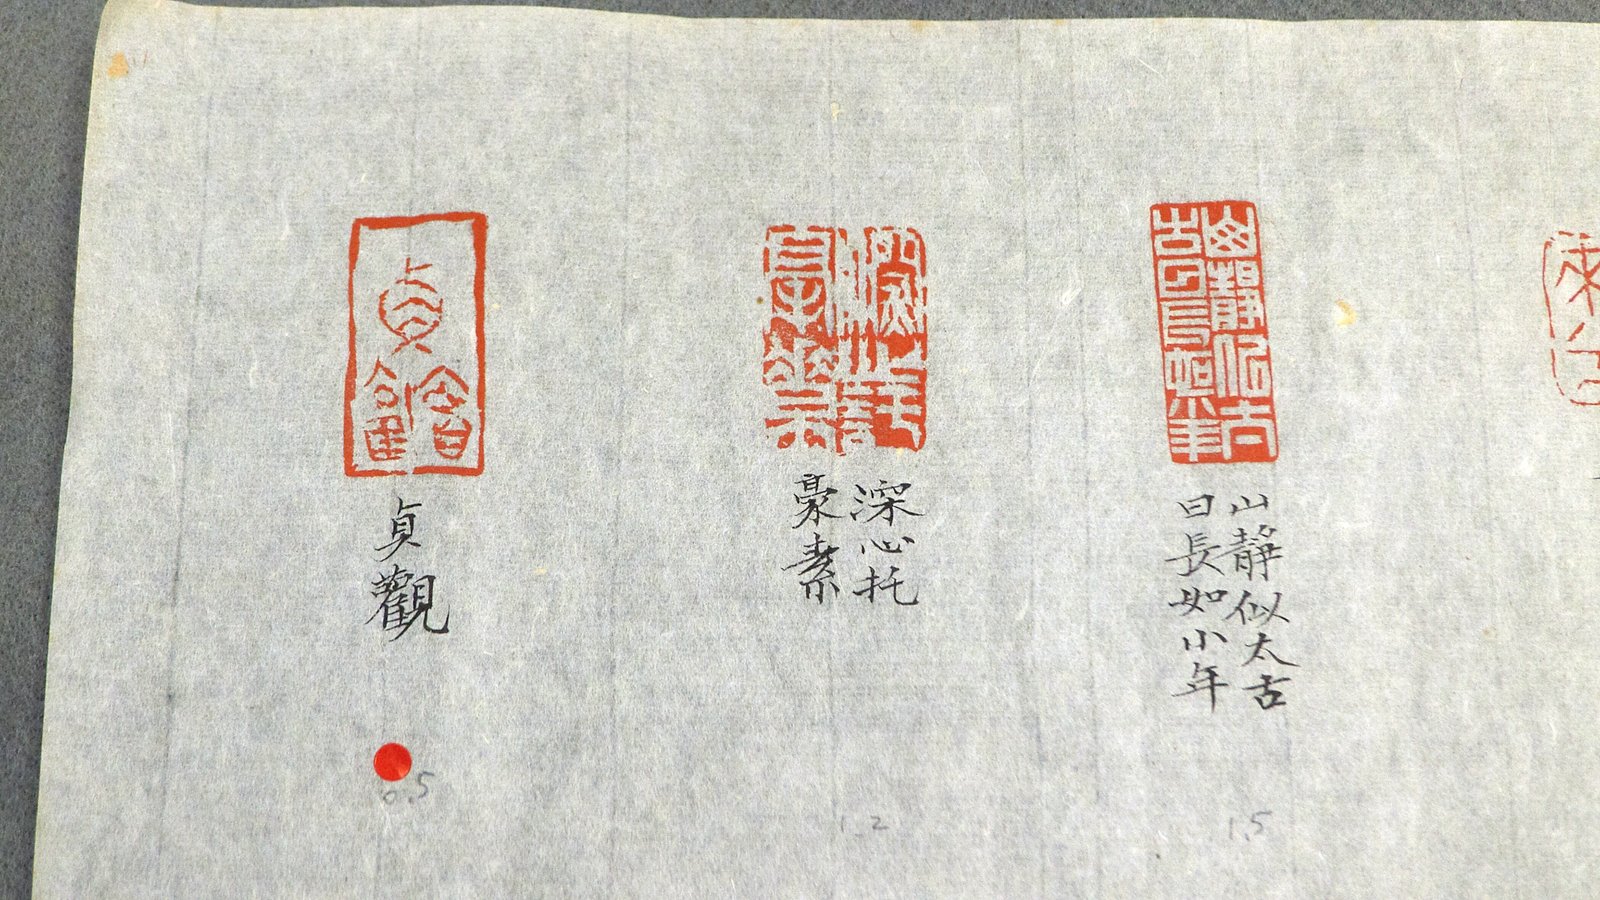 貞觀
0.5
深心托
豪素
1.2
山靜似太古
日長如小年
1.5